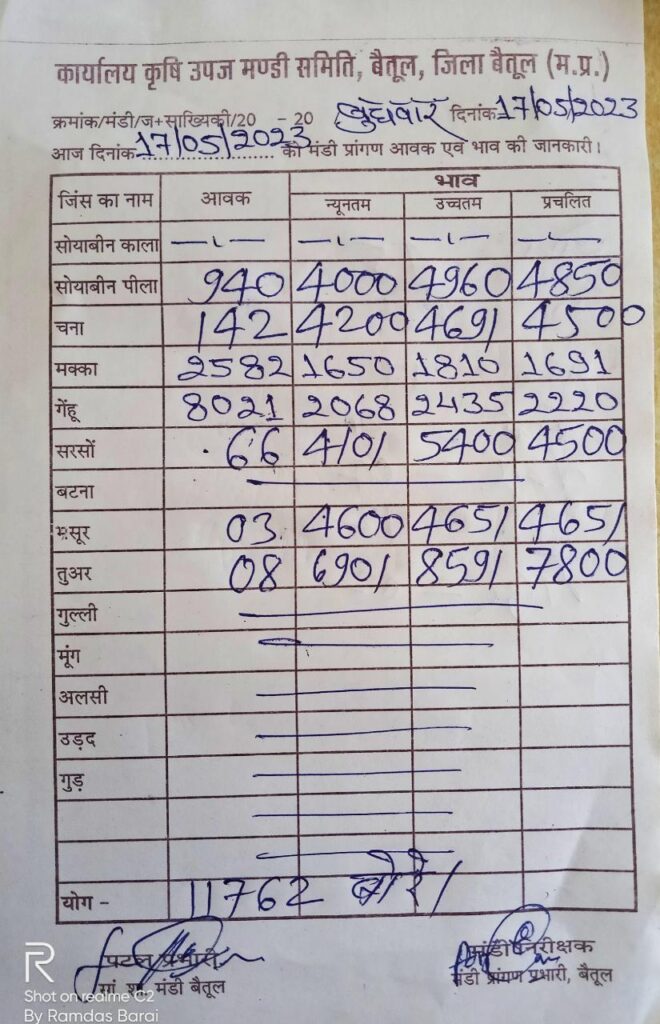 कार्यालय कृषि उपज मण्डी समिति, बैतूल, जिला बैतूल (म.प्र.)
क्रमांक/मंडी/ज+सांख्यिकी/20 - 20 बुधवार दिनांक 17/05/2023
आज दिनांक 17/05/2023 को मंडी प्रांगण आवक एवं भाव की जानकारी।
जिंस का नाम आवक भाव
न्यूनतम उच्चतम प्रचलित
सोयाबीन काला
सोयाबीन पीला 940 4000 4960 4850
चना 142 4200 4691 4500
मक्का 2582 1650 1810 1691
गेंहू 8021 2068 2435 2220
सरसों 66 4101 5400 4500
बटना
मसूर 03 4600 4651 4651
तुअर 08 6901 8591 7800
गुल्ली
मूंग
अलसी
उड़द
गुड़
योग - 11762 बोरे
प्रभारी मंडी निरीक्षक
मंडी बैतूल मंडी प्रांगण प्रभारी, बैतूल
R
Shot on realme C2
By Ramdas Barai